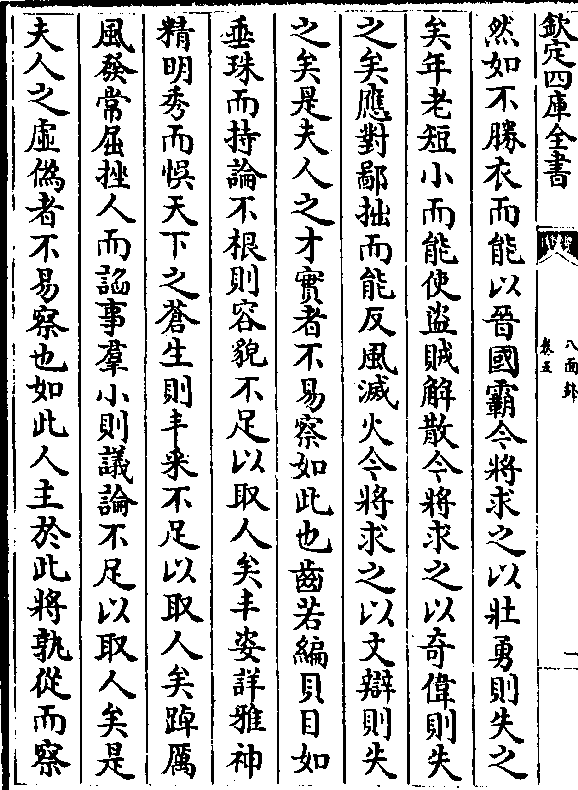 欽定四庫全書
八面鋒
卷五
一
然如不勝衣而能以晉國霸令將求之以壯勇則失之
矣年老短小而能使盜賊解散令將求之以奇偉則失
之矣應對鄙拙而能反風滅火令將求之以文辯則失
之矣是夫人之才實者不易察如此也齒若編貝目如
垂珠而持論不根則容貌不足以取人矣丰姿詳雅神
精明秀而悞天下之蒼生則丰采不足以取人矣踔厲
風發常屈挫人而諂事羣小則議論不足以取人矣是
夫人之虛偽者不易察也如此人主於此將孰從而察